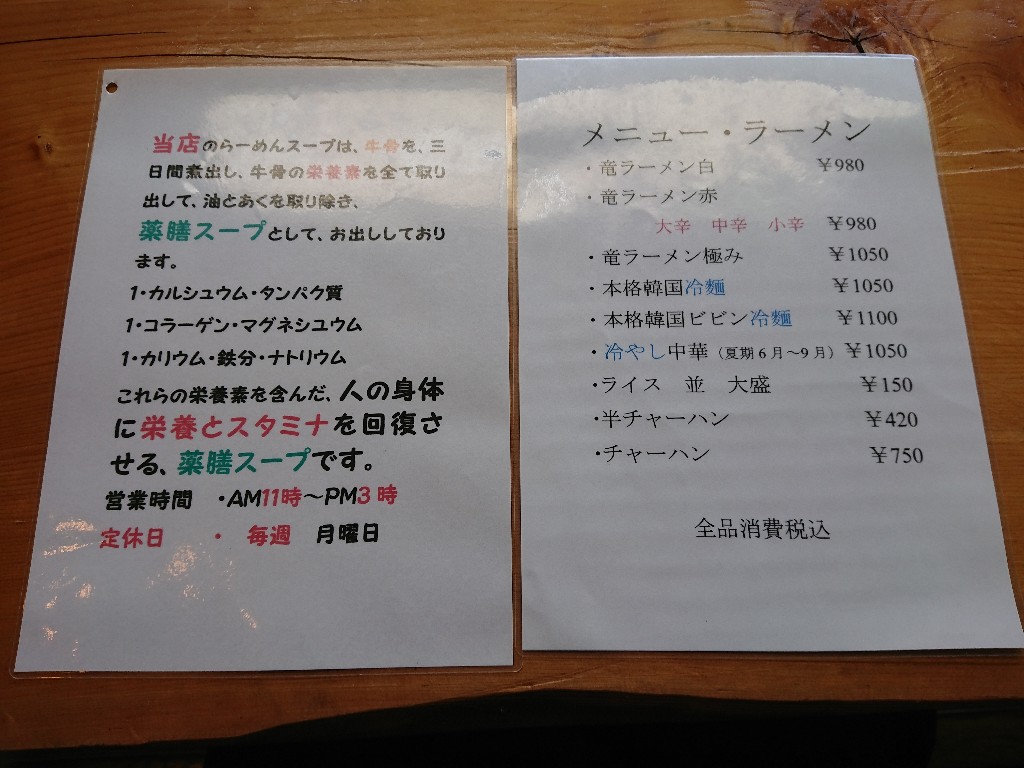 当店のらーめんスープは、牛骨を、三
日間煮出し、牛骨の栄養素を全て取り
出して、油とあくを取り除き、
薬膳スープとして、お出ししており
ます。
1・カルシュウム・タンパク質
1・コラーゲン・マグネシユウム
1・カリウム・鉄分・ナトリウム
これらの栄養素を含んだ、人の身体
に栄養とスタミナを回復さ
せる、薬膳スープです。
営業時間 ・AM11時～PM3時
定休日 ・ 毎週 月曜日
メニュー・ラーメン
・竜ラーメン白 ￥980
・竜ラーメン赤
大辛 中辛 小辛 ￥980
・竜ラーメン極み ￥1050
・本格韓国冷麺 ￥1050
・本格韓国ビビン冷麺 ￥1100
・冷やし中華（夏期6月～9月） ￥1050
・ライス 並 大盛 ￥150
・半チャーハン ￥420
・チャーハン ￥750
全品消費税込